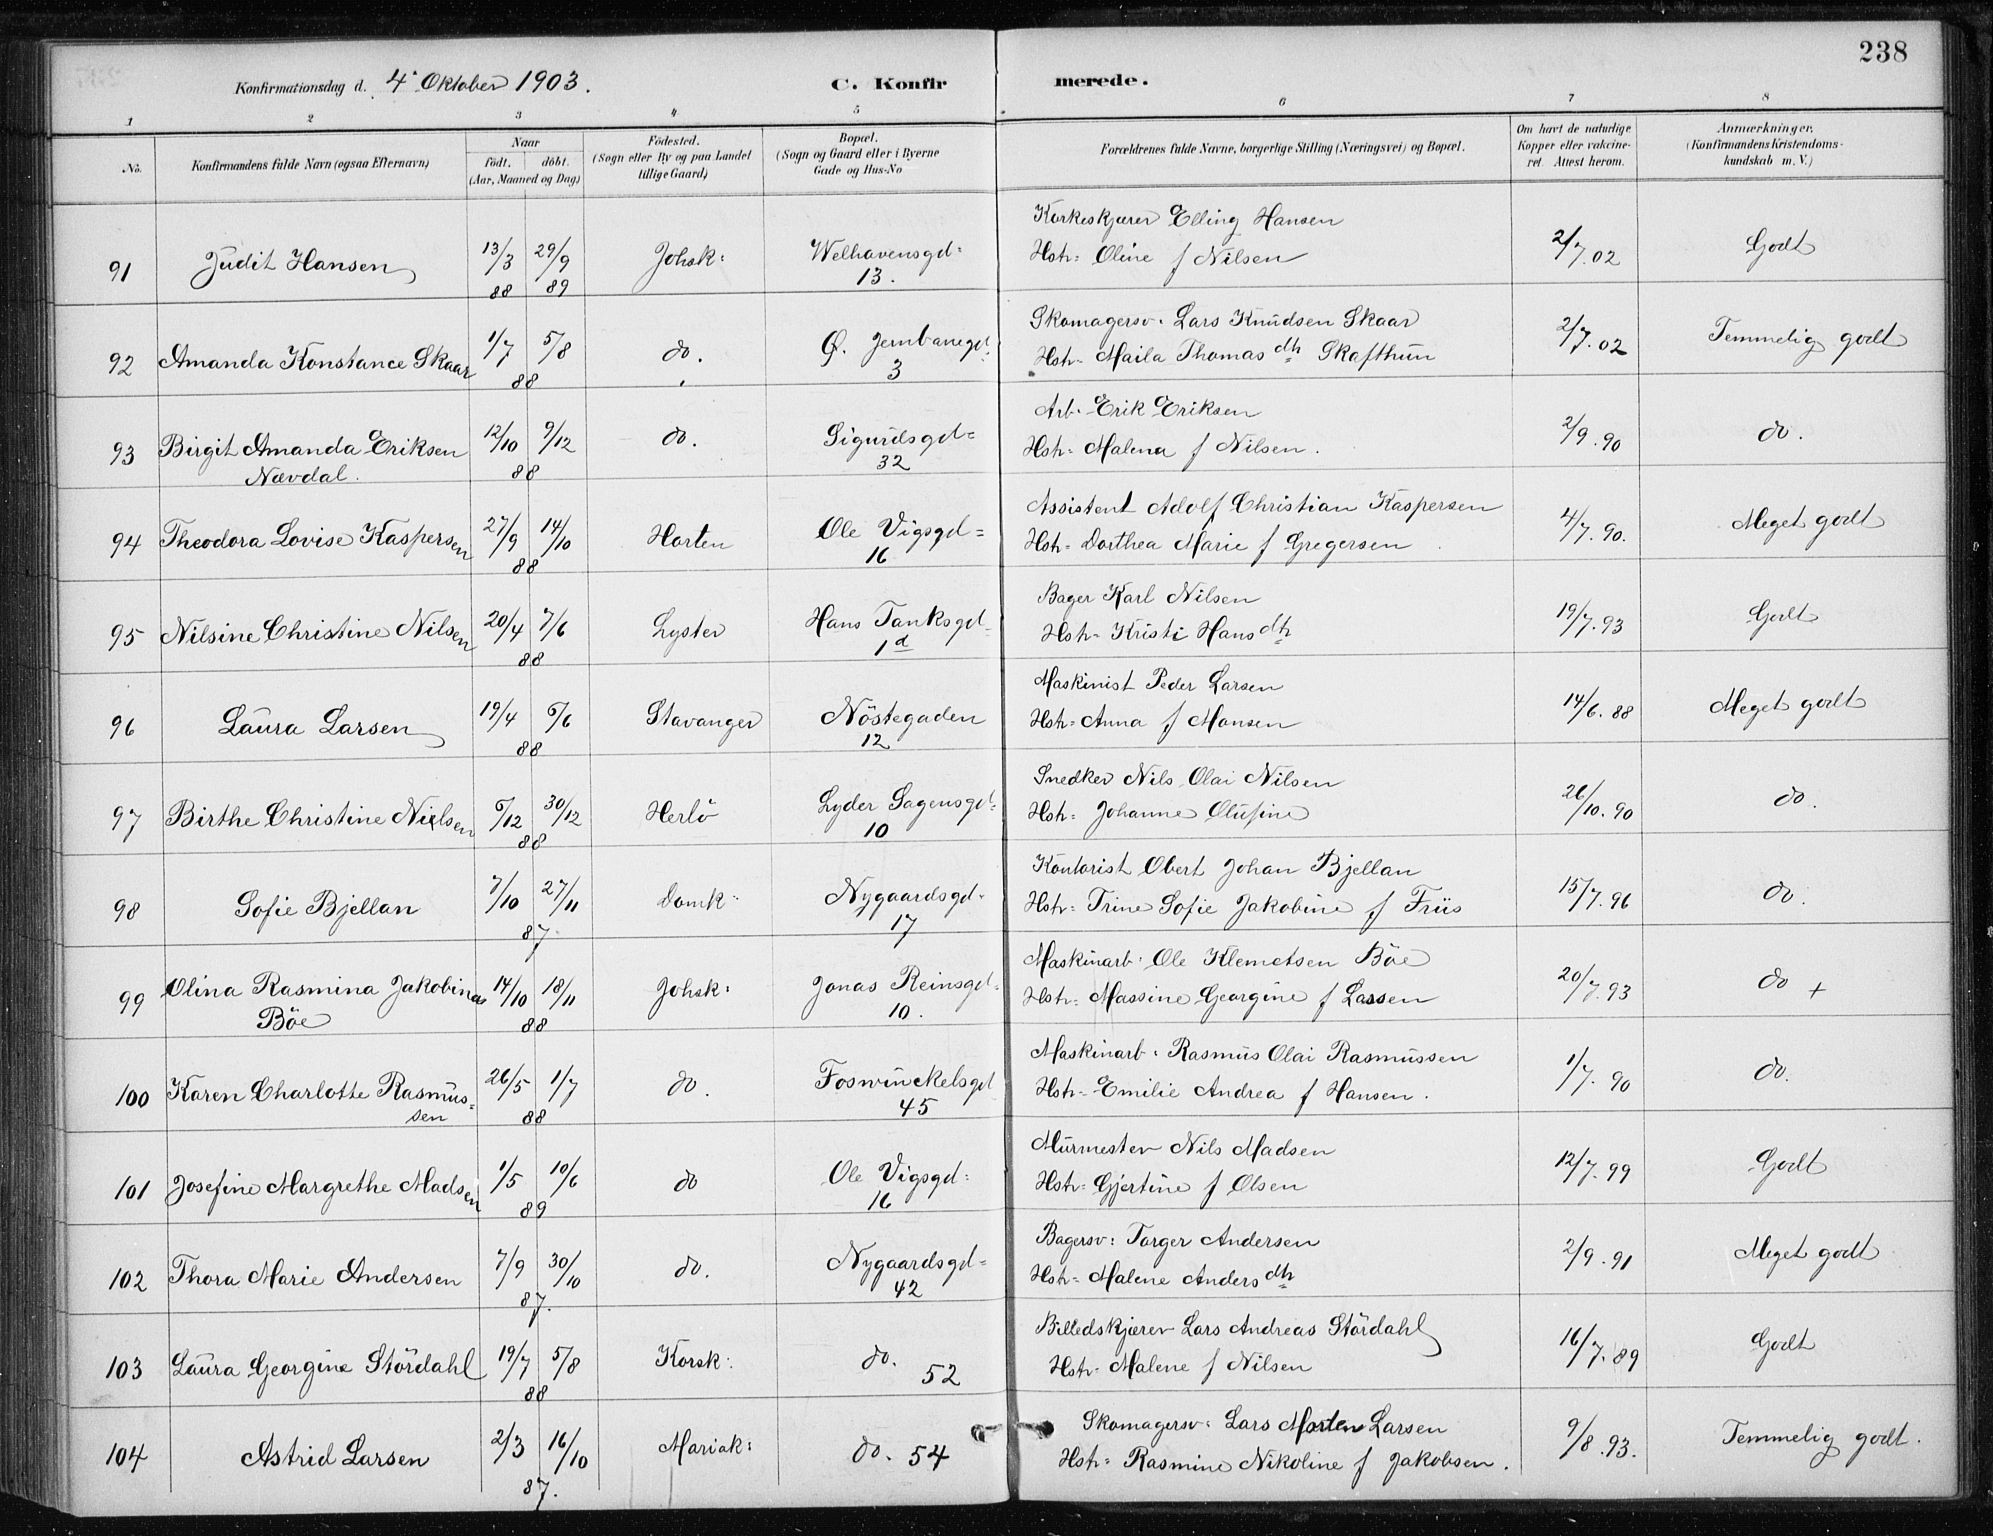 238
Konfirmationsdag d. 4' Oktober 1903. C. Konfir merede.
1 2 3 4 5 6 7 8
No. Konfirmandens fulde Navn (ogsaa Efternavn) Naar født. døbt. (Aar, Maaned og Dag) Fødested. (Sogn eller By og paa Landet tillige Gaard) Bopæl. (Sogn og Gaard eller i Byerne Gade og Hus-No Forældrenes fulde Navne, borgerlige Stilling (Næringsvei) og Bopæl. Om havt de naturlige Kopper eller vakcineret. Attest herom. Anmærkninger. (Konfirmandens Kristendomskundskab m. V.)
Korkeskjærer Elling Hansen
91 Judit Hansen 13/3 88 29/9 89 Johsk: Welhavensgd= 13. Hstr= Oline f Nilsen 2/7.02 Godt
Skomagersv. Lars Knudsen Skaar
92 Amanda Konstance Skaar 1/7 5/8 88 do. Ø. Jernbanegd= 3 Hstr= Maila Thomasdtr Skafthun 2/7.02 Temmelig godt
Arb. Erik Eriksen
93 Birgit Amanda Eriksen 12/10 9/12 88 do. Sigurdsgd= 32 Hstr= Malena f Nilsen. 2/9.90 do.
Nævdal.
Assistent Adolf Christian Kaspersen
94 Theodora Lovise Kaspersen 27/9 14/10 88 Horten Ole Vigsgd= 16 Hstr= Dorthea Marie f Gregersen 4/7.90. Meget godt
Bager Karl Nilsen
95 Nilsine Christine Nilsen 20/4 7/6 88 Lyster Hans Tanksgd= 1d Hstr= Kristi Hansdtr 19/7.93 Godt
Maskinist Peder Larsen
96 Laura Larsen 19/4 6/6 88 Stavanger Nöstegaden 12 Hstr= Anna f Monsen 14/6.88 Meget godt
Snedker Nils Olai Nilsen
97 Birthe Christine Nielsen 6/12 30/12 88 Herlö Lyder Sagensgd= 10 Hstr= Johanne Olufine 26/10.90 do.
Kontorist Obert Johan Bjellan
98 Sofie Bjellan 7/10 27/11 87 Domk: Nygaardsgd= 17 Hstr= Trine Sofie Jakobine f Friis 15/7.96 do.
Maskinarb. Ole Klemetsen Böe
99 Olina Rasmina Jakobina 14/10 18/11 88 Johsk: Jonas Reinsgd= 10. Hstr= Massine Georgine f Lassen 20/7.93 do +
Böe
Maskinarb: Rasmus Olai Rasmussen
100 Karen Charlotte Rasmus= 26/5 1/7 88 do. Foswinckelsgd 45 Hstr= Emilie Andrea f Hansen. 1/7.90 do.
sen
Murmester Nils Madsen
101 Josefine Margrethe Madsen 1/5 10/6 89 do Ole Vigsgd: 16 Hstr= Gjertine f Olsen 12/7.99 Godt
Bagersv: Torger Andersen
102 Thora Marie Andersen 7/9 30/10 87. do. Nygaardsgd= 42 Hstr= Malene Andersdtr 2/9.91 Meget godt
Billedskjærer Lars Andreas Stördahl
103 Laura Georgine Stördahl 19/7 5/8 88 Korsk: do. 52 Hstr= Malene f Nilsen 16/7.89 Godt
Skomagersv: Lars Morten Larsen
104 Astrid Larsen 2/3 16/10 87. Mariak: do. 54 Hstr= Rasmine Nikoline f Jakobsen. 9/8.93. Temmelig godt.